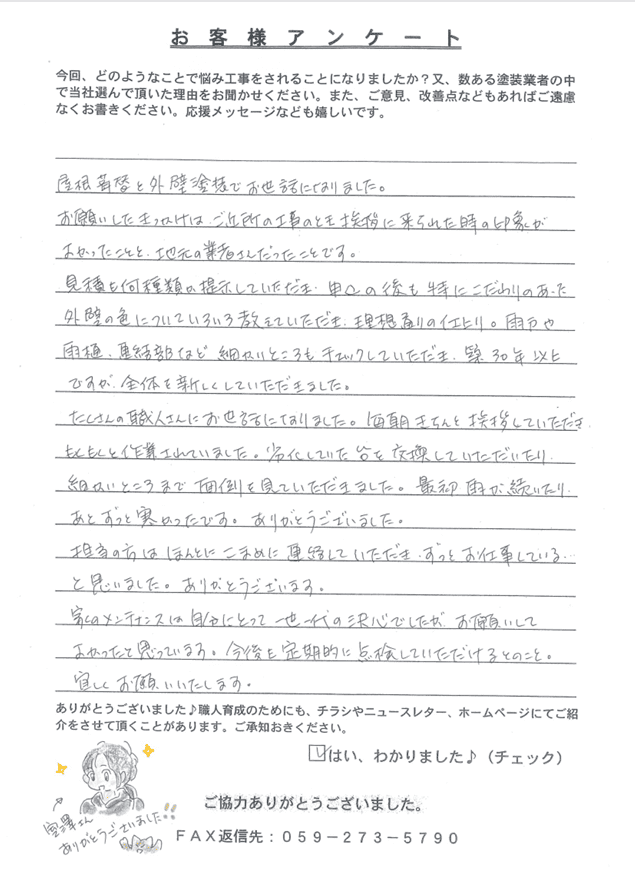 お客様アンケート
今回、どのようなことで悩み工事をされることになりましたか？又、数ある塗装業者の中
で当社選んで頂いた理由をお聞かせください。また、ご意見、改善点などもあればご遠慮
なくお書きください。応援メッセージなども嬉しいです。
屋根葺替と外壁塗装でお世話になりました。
お願いしたきっかけは、ご近所の工事のとき挨拶に来られた時の印象が
よかったことと、地元の業者さんだったことです。
見積を何種類か提示していただき、申込の後も特にこだわりのあった
外壁の色についていろいろ教えていただき、理想通りの仕上り。雨戸や
雨樋、連結部など細かいところもチェックしていただき、築30年以上
ですが、全体を新しくしていただきました。
たくさんの職人さんにお世話になりました。毎朝きちんと挨拶していただき
もくもくと作業されていました。劣化していた台を交換していただいたり
細かいところまで面倒を見ていただきました。最初雨が続いたり、
あとずっと寒かったです。ありがとうございました。
担当の方はほんとにこまめに連絡していただき、ずっとお仕事している…
と思いました。ありがとうございます。
家のメンテナンスは自分にとって一世一代の決心でしたが、お願いして
よかったと思っています。今後も定期的に点検していただけるとのこと。
宜しくお願いいたします。
ありがとうございました♪職人育成のためにも、チラシやニュースレター、ホームページにてご紹
介をさせて頂くことがあります。ご承知おきください。
はい、わかりました♪（チェック）
宮澤さん
ありがとうございました!!
ご協力ありがとうございました。
ＦＡＸ返信先：０５９－２７３－５７９０